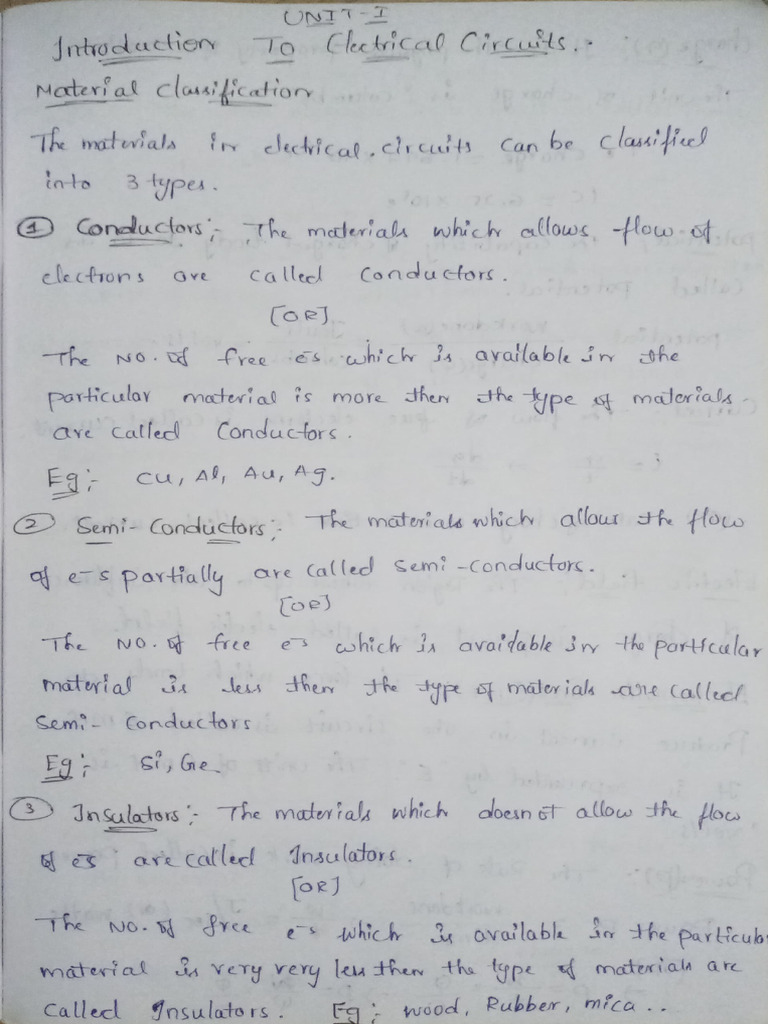 UNIT-I
Introduction To Electrical Circuits.
Material Classification
The materials in electrical circuits can be classified
into 3 types.
① Conductors:- The materials which allows flow of
electrons are called conductors.
[OR]
The NO. of free e-s which is available in the
particular material is more then the type of materials
are called Conductors.
Eg:- Cu, Al, Au, Ag.
② Semi-Conductors:- The materials which allows the flow
of e-s partially are called semi-conductors.
[OR]
The NO. of free e-s which is available in the particular
material is less then the type of materials are called
semi-conductors
Eg:- Si, Ge
③ Insulators:- The materials which doesnot allow the flow
of e-s are called Insulators.
[OR]
The NO. of free e-s which is available in the particular
material is very very less then the type of materials are
called Insulators. Eg:- wood, Rubber, mica..